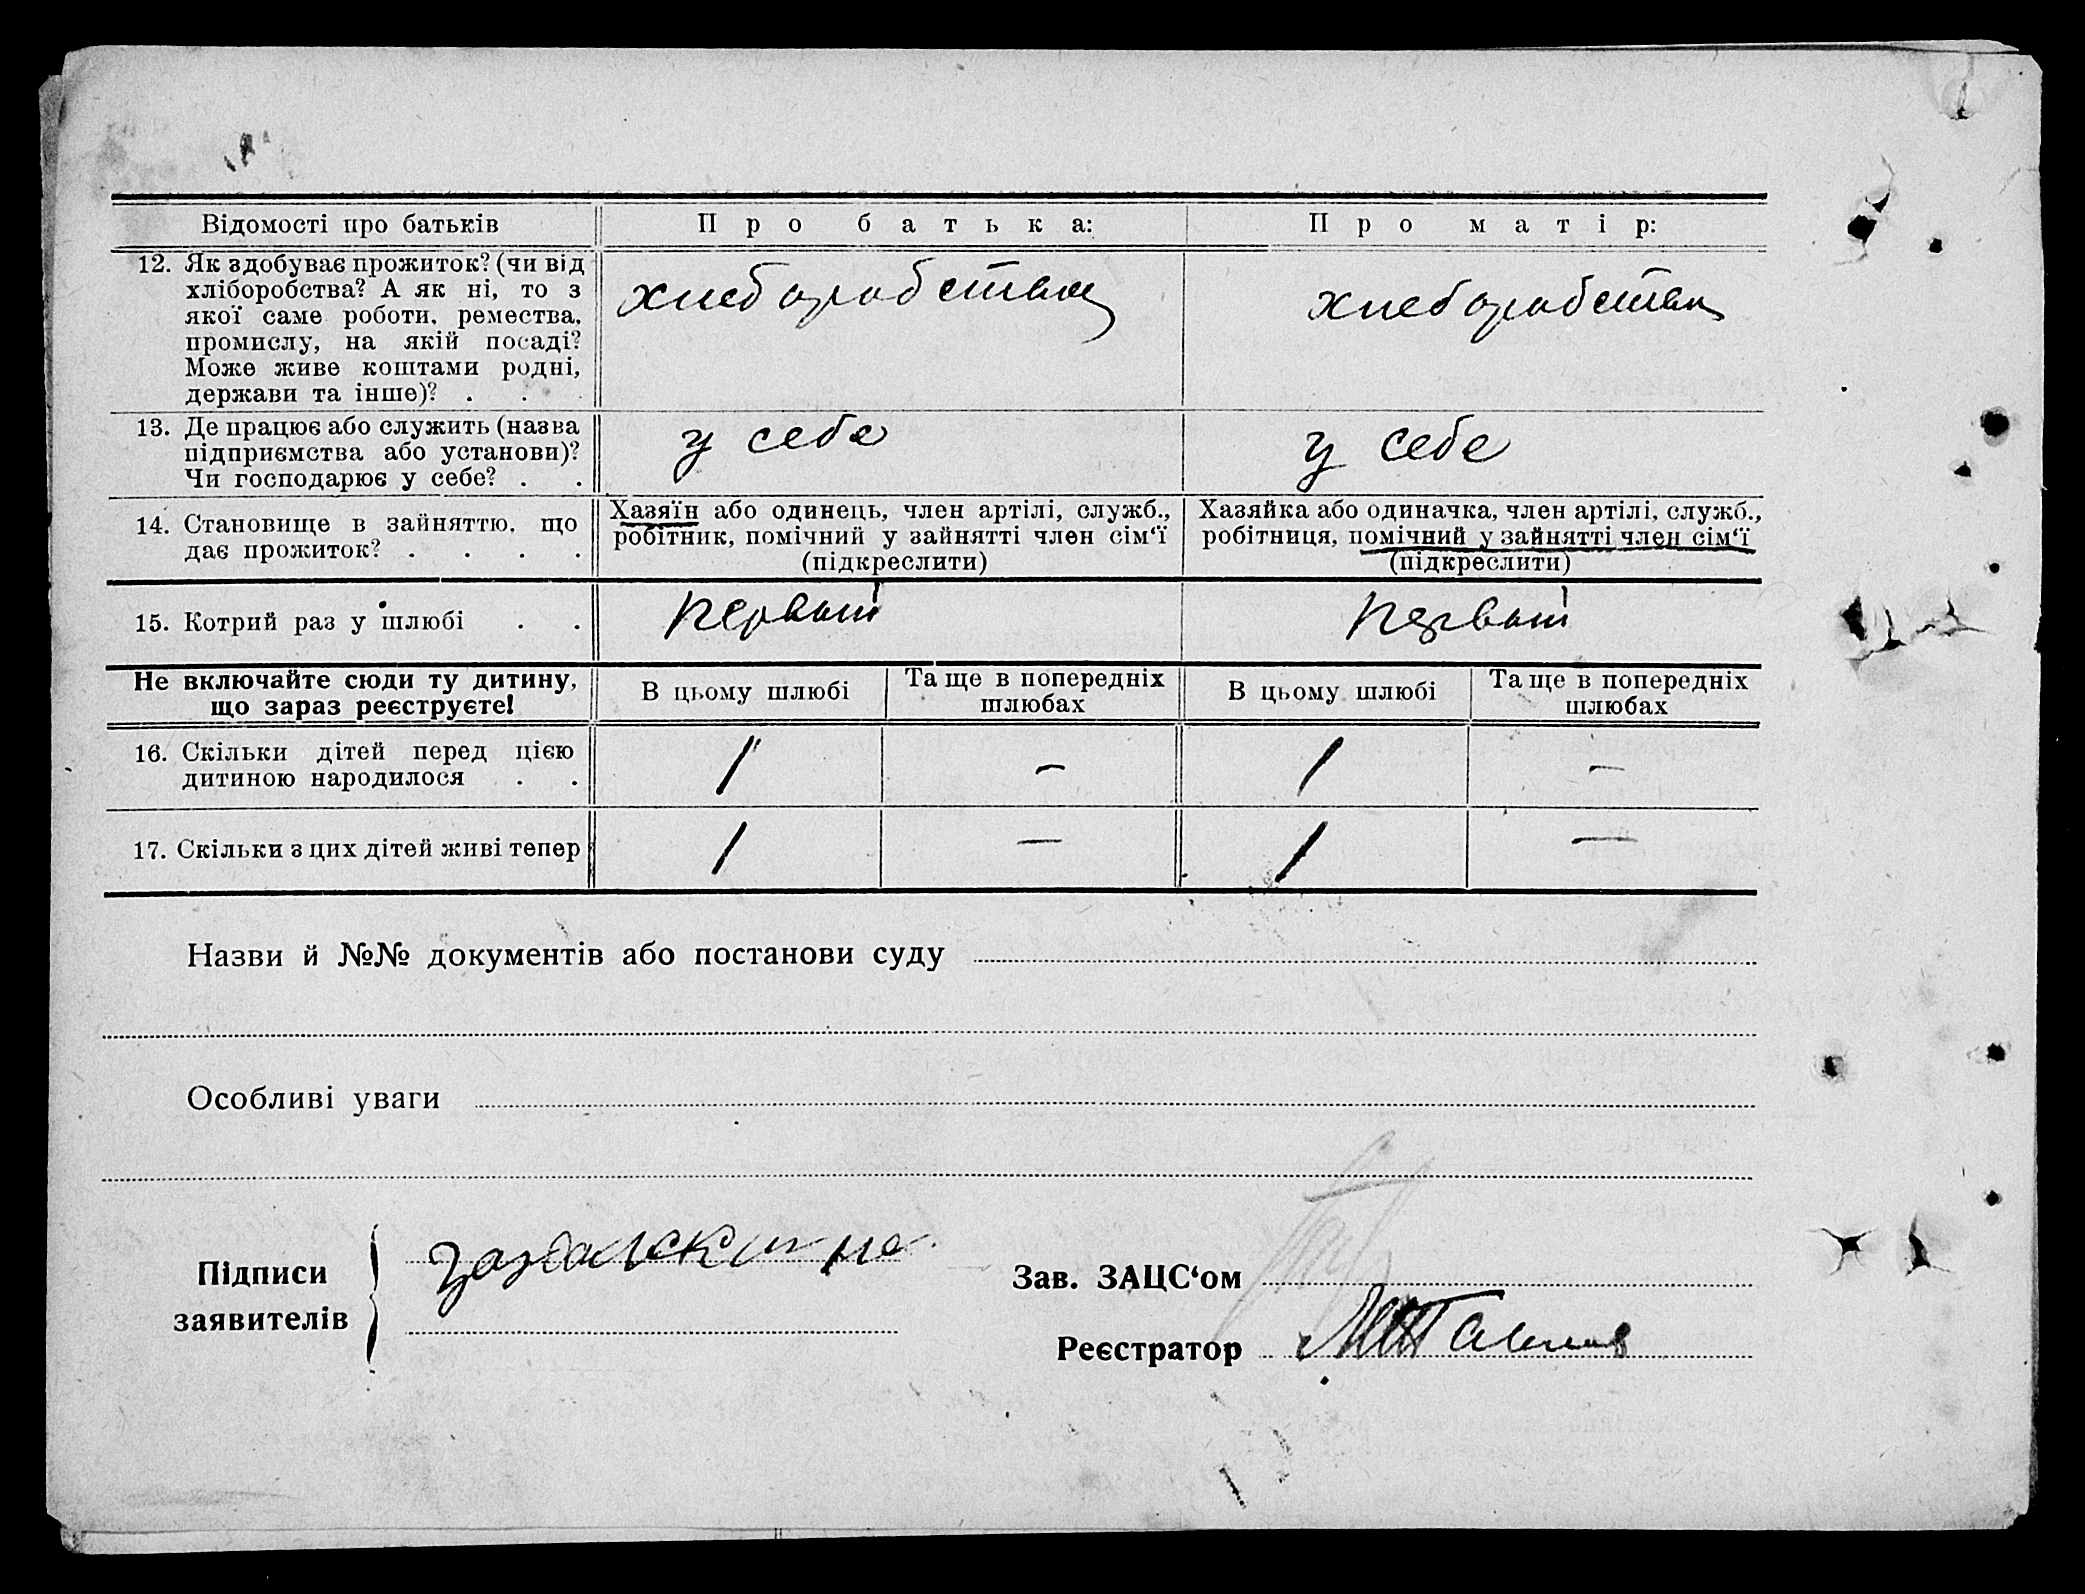 Відомості про батьків
Про батька:
Про матір:
12. Як здобуває прожиток? (чи від
хліборобства? А як ні, то з
якої саме роботи, ремества,
промислу, на якій посаді?
Може живе коштами родні,
держави та інше)? . . .
хлеборобством
хлеборобством
13. Де працює або служить (назва
підприємства або установи)?
Чи господарює у себе? . .
у себе
у себе
14. Становище в зайняттю, що
дає прожиток? . . . .
Хазяїн або одинець, член артілі, служб.,
робітник, помічний у зайнятті член сім‘ї
(підкреслити)
Хазяйка або одиначка, член артілі, служб.,
робітниця, помічний у зайнятті член сім‘ї
(підкреслити)
15. Котрий раз у шлюбі . .
первый
первый
Не включайте сюди ту дитину,
що зараз реєструєте!
В цьому шлюбі
Та ще в попередніх
шлюбах
В цьому шлюбі
Та ще в попередніх
шлюбах
16. Скільки дітей перед цією
дитиною народилося . .
1 – 1 –
17. Скільки з цих дітей живі тепер
1 – 1 –
Назви й №№ документів або постанови суду
Особливі уваги
Підписи
заявителів
Зав. ЗАЦС‘ом
Реєстратор